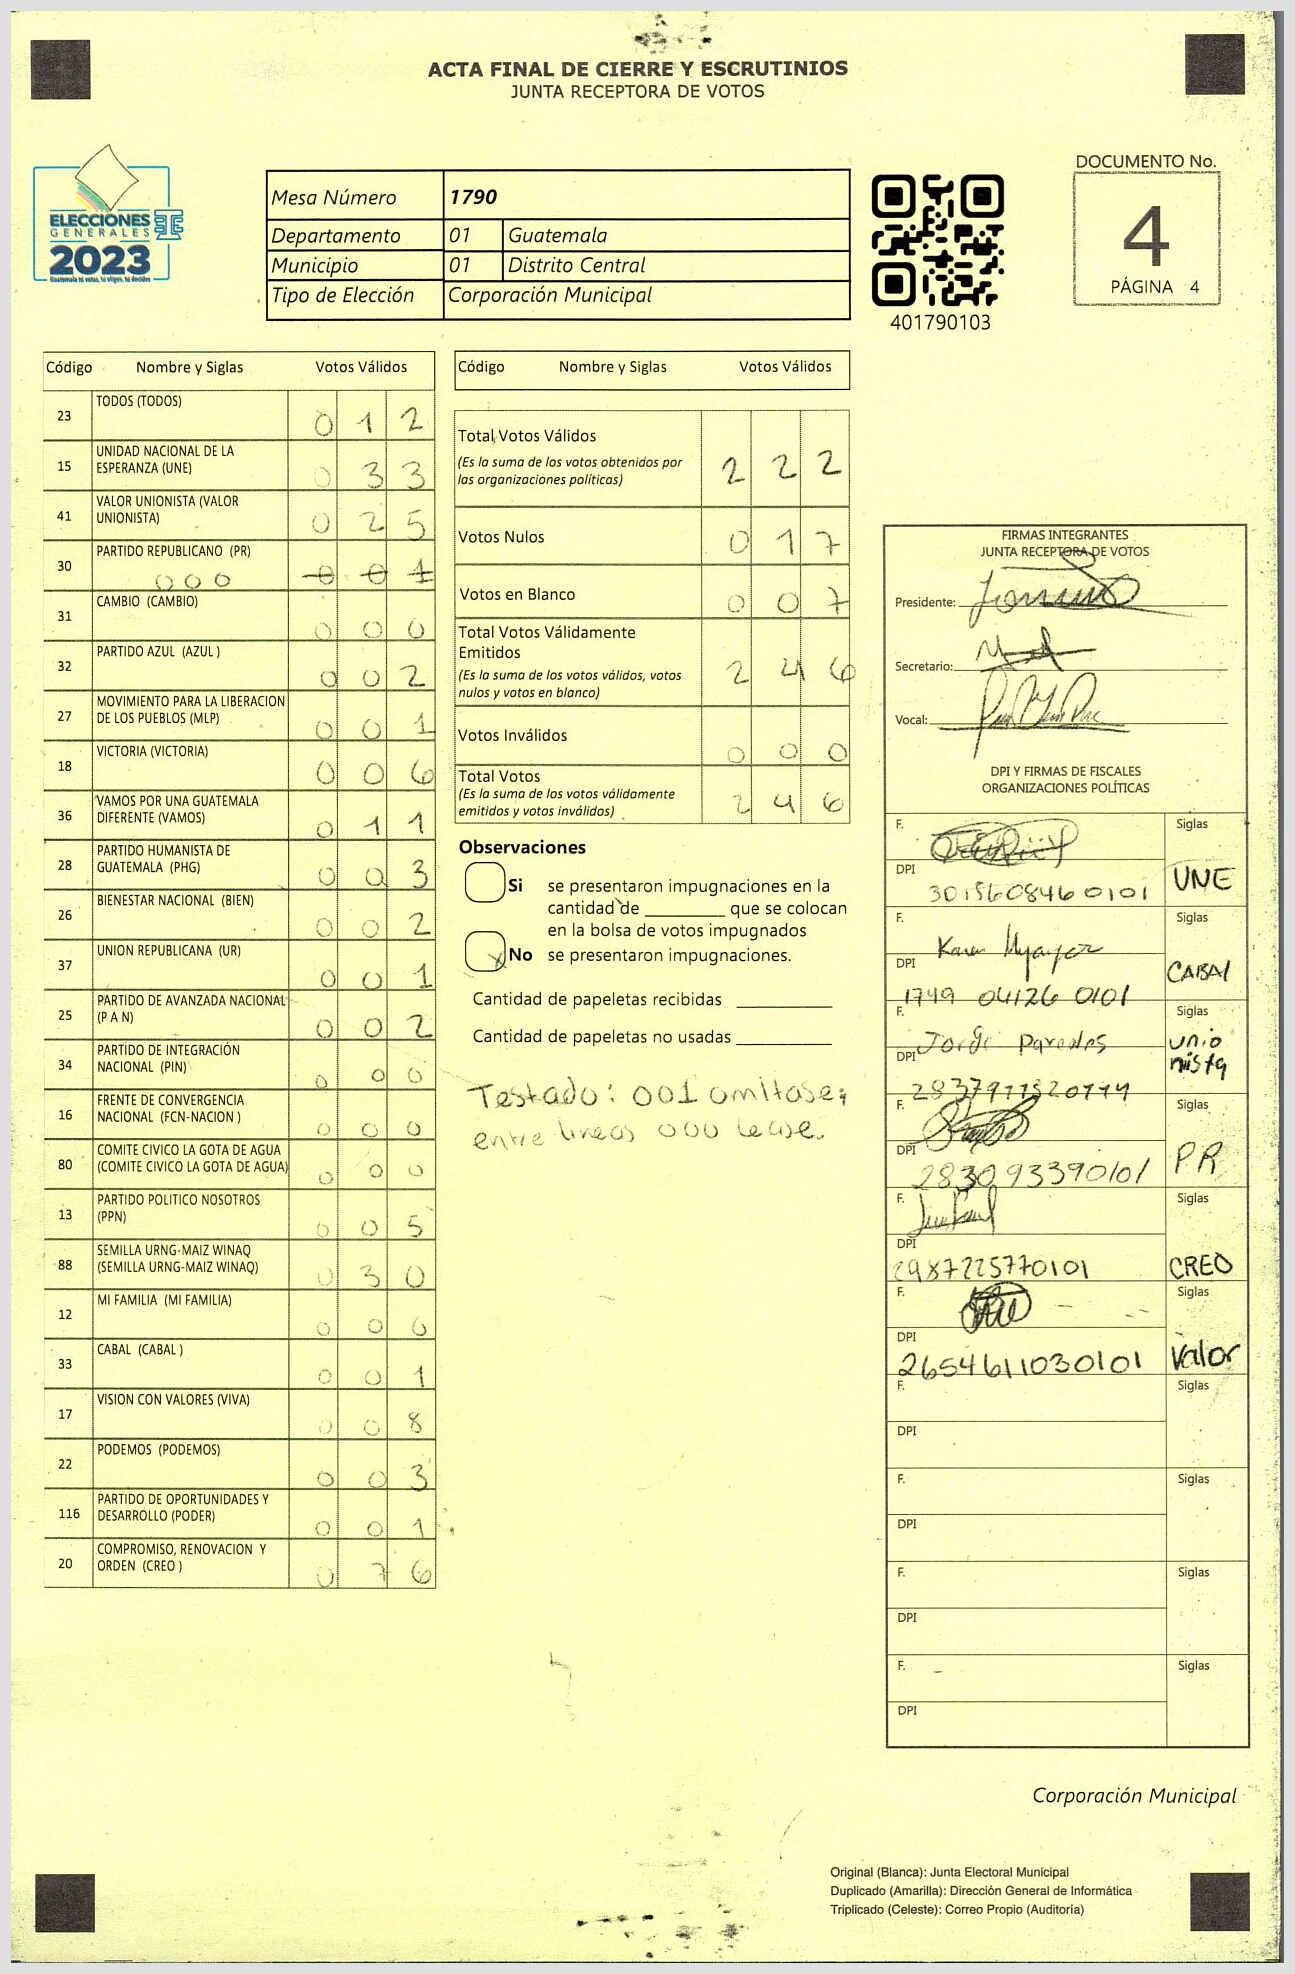 ACTA FINAL DE CIERRE Y ESCRUTINIOS
JUNTA RECEPTORA DE VOTOS
ELECCIONES
GENERALES
2023
Guatemala tú votas, tú eliges, tú decides
Mesa Número 1790
Departamento 01 Guatemala
Municipio 01 Distrito Central
Tipo de Elección Corporación Municipal
401790103
DOCUMENTO No.
4
PÁGINA 4
Código Nombre y Siglas Votos Válidos
23 TODOS (TODOS) 0 1 2
15 UNIDAD NACIONAL DE LA
ESPERANZA (UNE) 0 3 3
41 VALOR UNIONISTA (VALOR
UNIONISTA) 0 2 5
30 PARTIDO REPUBLICANO (PR)
000 0 0 1
31 CAMBIO (CAMBIO) 0 0 0
32 PARTIDO AZUL (AZUL ) 0 0 2
27 MOVIMIENTO PARA LA LIBERACION
DE LOS PUEBLOS (MLP) 0 0 1
18 VICTORIA (VICTORIA) 0 0 6
36 VAMOS POR UNA GUATEMALA
DIFERENTE (VAMOS) 0 1 1
28 PARTIDO HUMANISTA DE
GUATEMALA (PHG) 0 0 3
26 BIENESTAR NACIONAL (BIEN) 0 0 2
37 UNION REPUBLICANA (UR) 0 0 1
25 PARTIDO DE AVANZADA NACIONAL
(P A N) 0 0 2
34 PARTIDO DE INTEGRACIÓN
NACIONAL (PIN) 0 0 0
16 FRENTE DE CONVERGENCIA
NACIONAL (FCN-NACION ) 0 0 0
80 COMITE CIVICO LA GOTA DE AGUA
(COMITE CIVICO LA GOTA DE AGUA) 0 0 0
13 PARTIDO POLITICO NOSOTROS
(PPN) 0 0 5
88 SEMILLA URNG-MAIZ WINAQ
(SEMILLA URNG-MAIZ WINAQ) 0 3 0
12 MI FAMILIA (MI FAMILIA) 0 0 0
33 CABAL (CABAL ) 0 0 1
17 VISION CON VALORES (VIVA) 0 0 8
22 PODEMOS (PODEMOS) 0 0 3
116 PARTIDO DE OPORTUNIDADES Y
DESARROLLO (PODER) 0 0 1
20 COMPROMISO, RENOVACION Y
ORDEN (CREO ) 0 7 6
Código Nombre y Siglas Votos Válidos
Total Votos Válidos
(Es la suma de los votos obtenidos por
las organizaciones políticas) 2 2 2
Votos Nulos 0 1 7
Votos en Blanco 0 0 7
Total Votos Válidamente
Emitidos
(Es la suma de los votos válidos, votos
nulos y votos en blanco) 2 4 6
Votos Inválidos 0 0 0
Total Votos
(Es la suma de los votos válidamente
emitidos y votos inválidos) 2 4 6
Observaciones
Si se presentaron impugnaciones en la
cantidad de ________ que se colocan
en la bolsa de votos impugnados
x No se presentaron impugnaciones.
Cantidad de papeletas recibidas
Cantidad de papeletas no usadas
Testado: 001 omitase;
entre lineas 000 lease.
FIRMAS INTEGRANTES
JUNTA RECEPTORA DE VOTOS
Presidente:
Secretario:
Vocal:
DPI Y FIRMAS DE FISCALES
ORGANIZACIONES POLÍTICAS
F. Siglas
DPI 3015608460101 UNE
F. Karen Siglas
DPI 1749 04126 0101 CABAL
F. Jorge Paredes Siglas
DPI unio
nista
F. Siglas
DPI 283093390101 PR
F. Siglas
DPI 2987225770101 CREO
F. Siglas
DPI 2654611030101 Valor
F. Siglas
DPI
F. Siglas
DPI
F. Siglas
DPI
F. Siglas
DPI
Corporación Municipal
Original (Blanca): Junta Electoral Municipal
Duplicado (Amarilla): Dirección General de Informática
Triplicado (Celeste): Correo Propio (Auditoría)